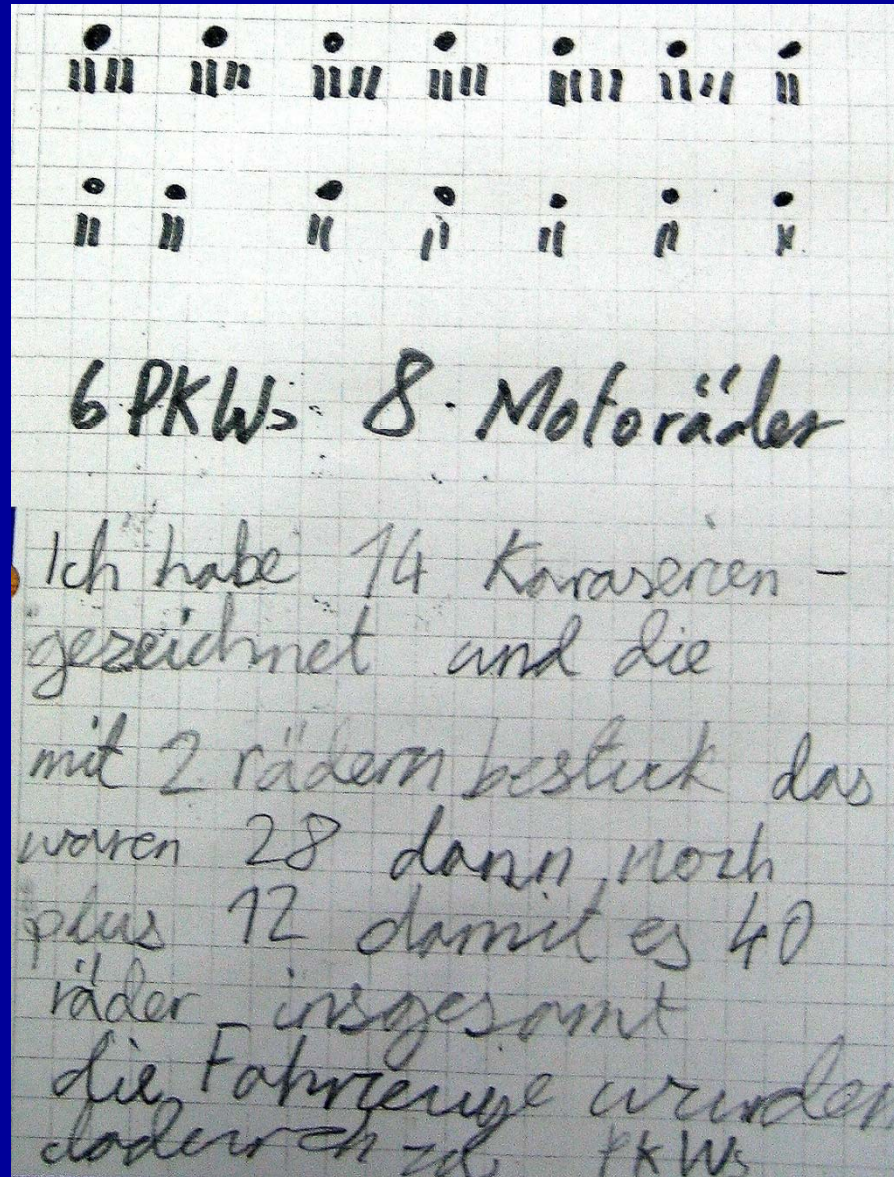 6 PKWs 8 Motoräder
Ich habe 14 Karaserien -
gezeichnet und die
mit 2 rädern bestuck das
waren 28 dann noch
plus 12 damit es 40
räder insgesamt
die Fahrzeuge wurden
dadurch zu PKWs